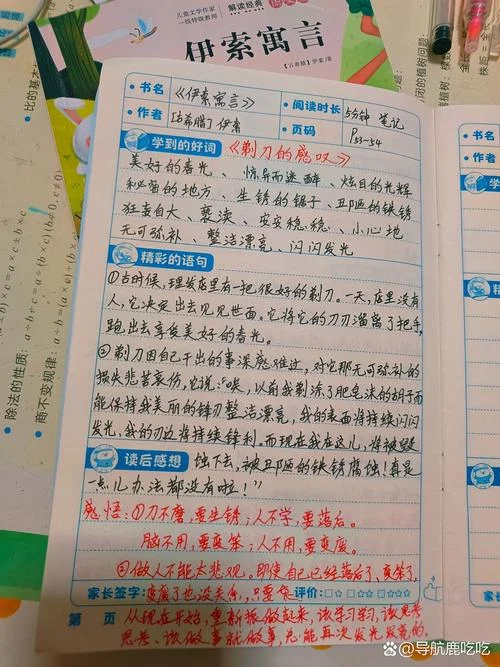 儿童文学作家
一线特级教师
解读经典
伊索寓言
【古希腊】伊索/著
除法的性质：
商不变规律：
书名 《伊索寓言》
阅读时长 5分钟 笔记
作者 古希腊 伊索
页码 P53-54
学到的好词 《剃刀的感叹》
美好的春光 、惊异而迷醉 、炫目的光辉
的地方 、生锈的锯子 、丑陋的铁锈
狂妄自大 、亵渎 、安安稳稳 、小心地
无可弥补 、整洁漂亮 、闪闪发光
精彩的语句
①古时候，理发店里有一把很好的剃刀。一天，店里没有
人，它决定出去见见世面。它将它的刀刃溜离了把手，
跑出去享受美好的春光。
②剃刀因自己干出的事深感难过，对它那无可弥补的
损失悲苦哀伤，它说："唉，以前我剃涂了肥皂沫的胡子而
能保持我美丽的锋刃整洁漂亮，我的表面将持续闪闪
发光，我的刃边将持续锋利。而现在我在这儿，将被毁
读后感想 蚀下去，被丑陋的铁锈腐蚀！真是
一点儿办法都没有啦！"
感悟：①刀不磨，要生锈；人不学，要落后。
脑不用，要变笨；人不用，要变废。
②做人不能太悲观。即使自己已经落后了，变笨了，
家长签字： 变废了也没关系，只要 评价：
第 页 从现在开始，重新振做起来，该学习学习，该思考
思考，该做事就做事，也能再次发光发亮的。
@导航鹿吃吃